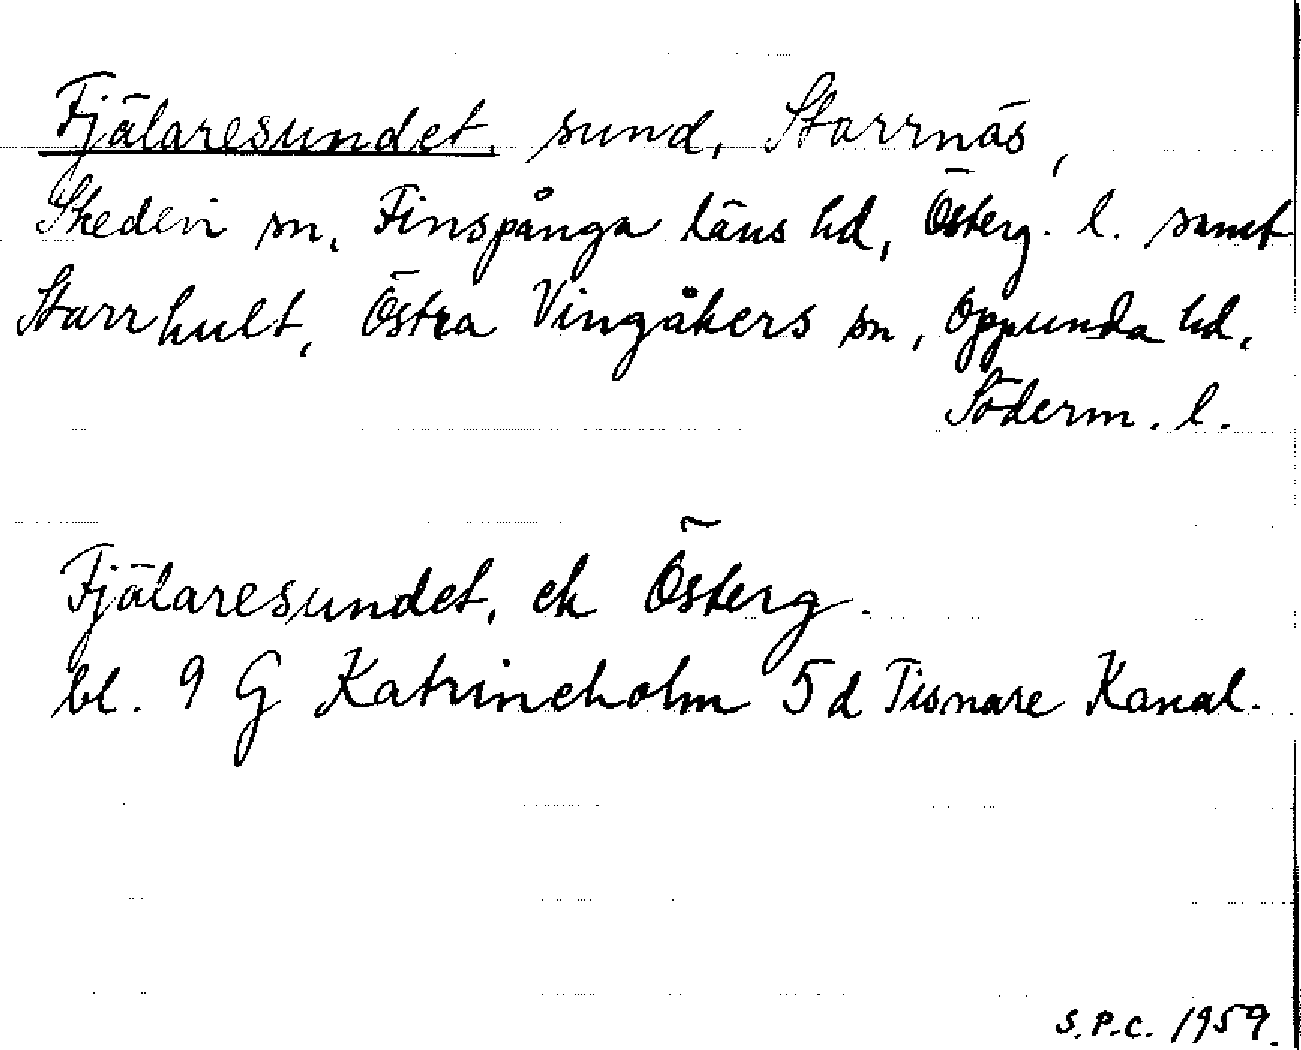 Fjälaresundet, sund, Starrnäs,
Skedevi sn, Finspånga läns hd, Österg. l. samt
Starrhult, Östra Vingåkers sn, Oppunda hd,
Söderm. l.
Fjälaresundet, ek Österg.
bl. 9 G Katrineholm 5d Tisnare Kanal.
S.P.C. 1959.